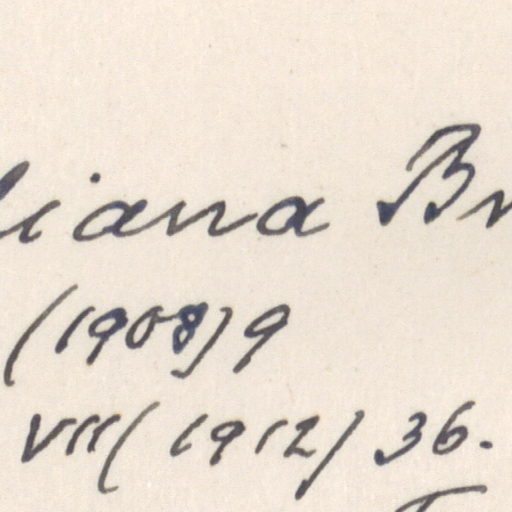 liana Br
(1908) 9
VII (1912) 36.